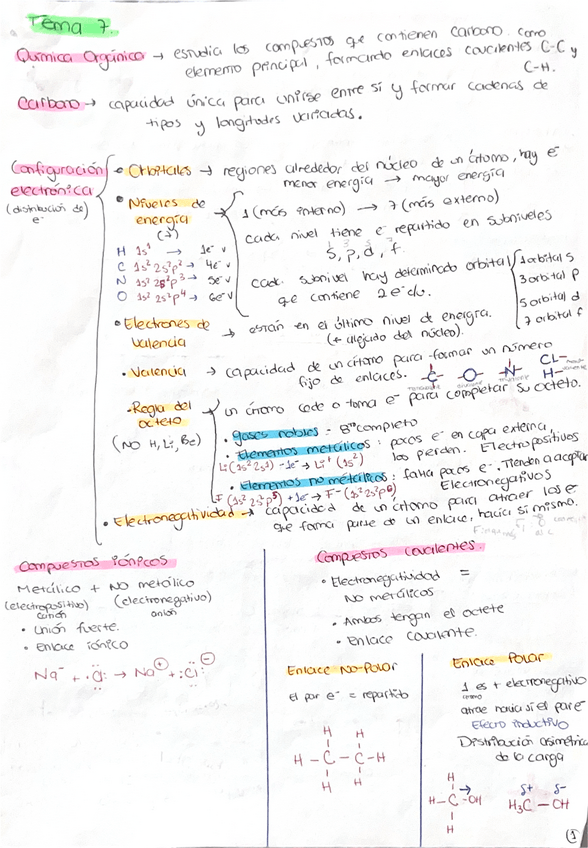 Tema 7.
Química Orgánica → estudia los compuestos qe contienen carbono como
elemento principal, formando enlaces covalentes C-C y
C-H.
Carbono → capacidad única para unirse entre sí y formar cadenas de
tipos y longitudes variadas.
Configuración
electrónica
(distribución de)
e-
• Orbitales → regiones alrededor del núcleo de un átomo, hay e-
menor energía → mayor energía
• Niveles de
energía
(7)
1 (más interno) → 7 (más externo)
cada nivel tiene e- repartido en subniveles
s, p, d, f
cada subnivel hay determinado orbital
que contiene 2e- c/u.
1 orbital s
3 orbital p
5 orbital d
7 orbital f
H 1s¹ → 1e- v
C 1s² 2s²p² → 4e- v
N 1s² 2s²p³ → 5e- v
O 1s² 2s²p⁴ → 6e- v
• Electrones de
Valencia
→ están en el último nivel de energía.
(+ alejado del núcleo).
• Valencia → capacidad de un átomo para formar un número
fijo de enlaces. -C- -O- -N- CL-
H-
• Regla del
octeto
(NO H, Li, Be)
un átomo cede o toma e- para completar su octeto.
• gases nobles = 8e- completo
• Elementos metálicos: pocos e- en capa externa,
los pierden. Electropositivos
Li (1s² 2s1) -1e- → Li+ (1s²)
• Elementos no metálicos: falta pocos e-. Tienden a aceptar
Electronegativos
F (1s² 2s²p⁵) +1e- → F- (1s² 2s²p⁶)
• Electronegatividad → capacidad de un átomo para atraer los e-
que forma parte de un enlace, hacia sí mismo.
Compuestos iónicos
Metálico + NO metálico
(electropositivo) (electronegativo)
catión anión
• Unión fuerte.
• Enlace iónico
Na- + :Cl: → Na⊕ + :Cl: ⊖
Compuestos covalentes.
• Electronegatividad =
No metálicos
• Ambos tengan el octete
• Enlace covalente.
Enlace No-Polar
el par e- = repartido
H H
H - C - C - H
H H
Enlace Polar
1 es + electronegativo
atrae hacia sí el par e-
Efecto inductivo
Distribución asimétrica
de la carga
H
H - C - OH
H
δ+ δ-
H₃C - OH
(1